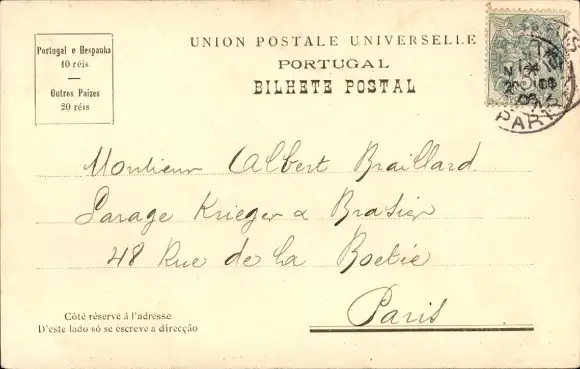 Portugal e Hespanha
10 réis
Outros Paizes
20 réis
UNION POSTALE UNIVERSELLE
PORTUGAL
BILHETE POSTAL
Monsieur Albert Braillard
Garage Krieger & Brasier
48 Rue de la Boetie
Paris
Côté réservé à l'adresse
D'este lado só se escreve a direcção